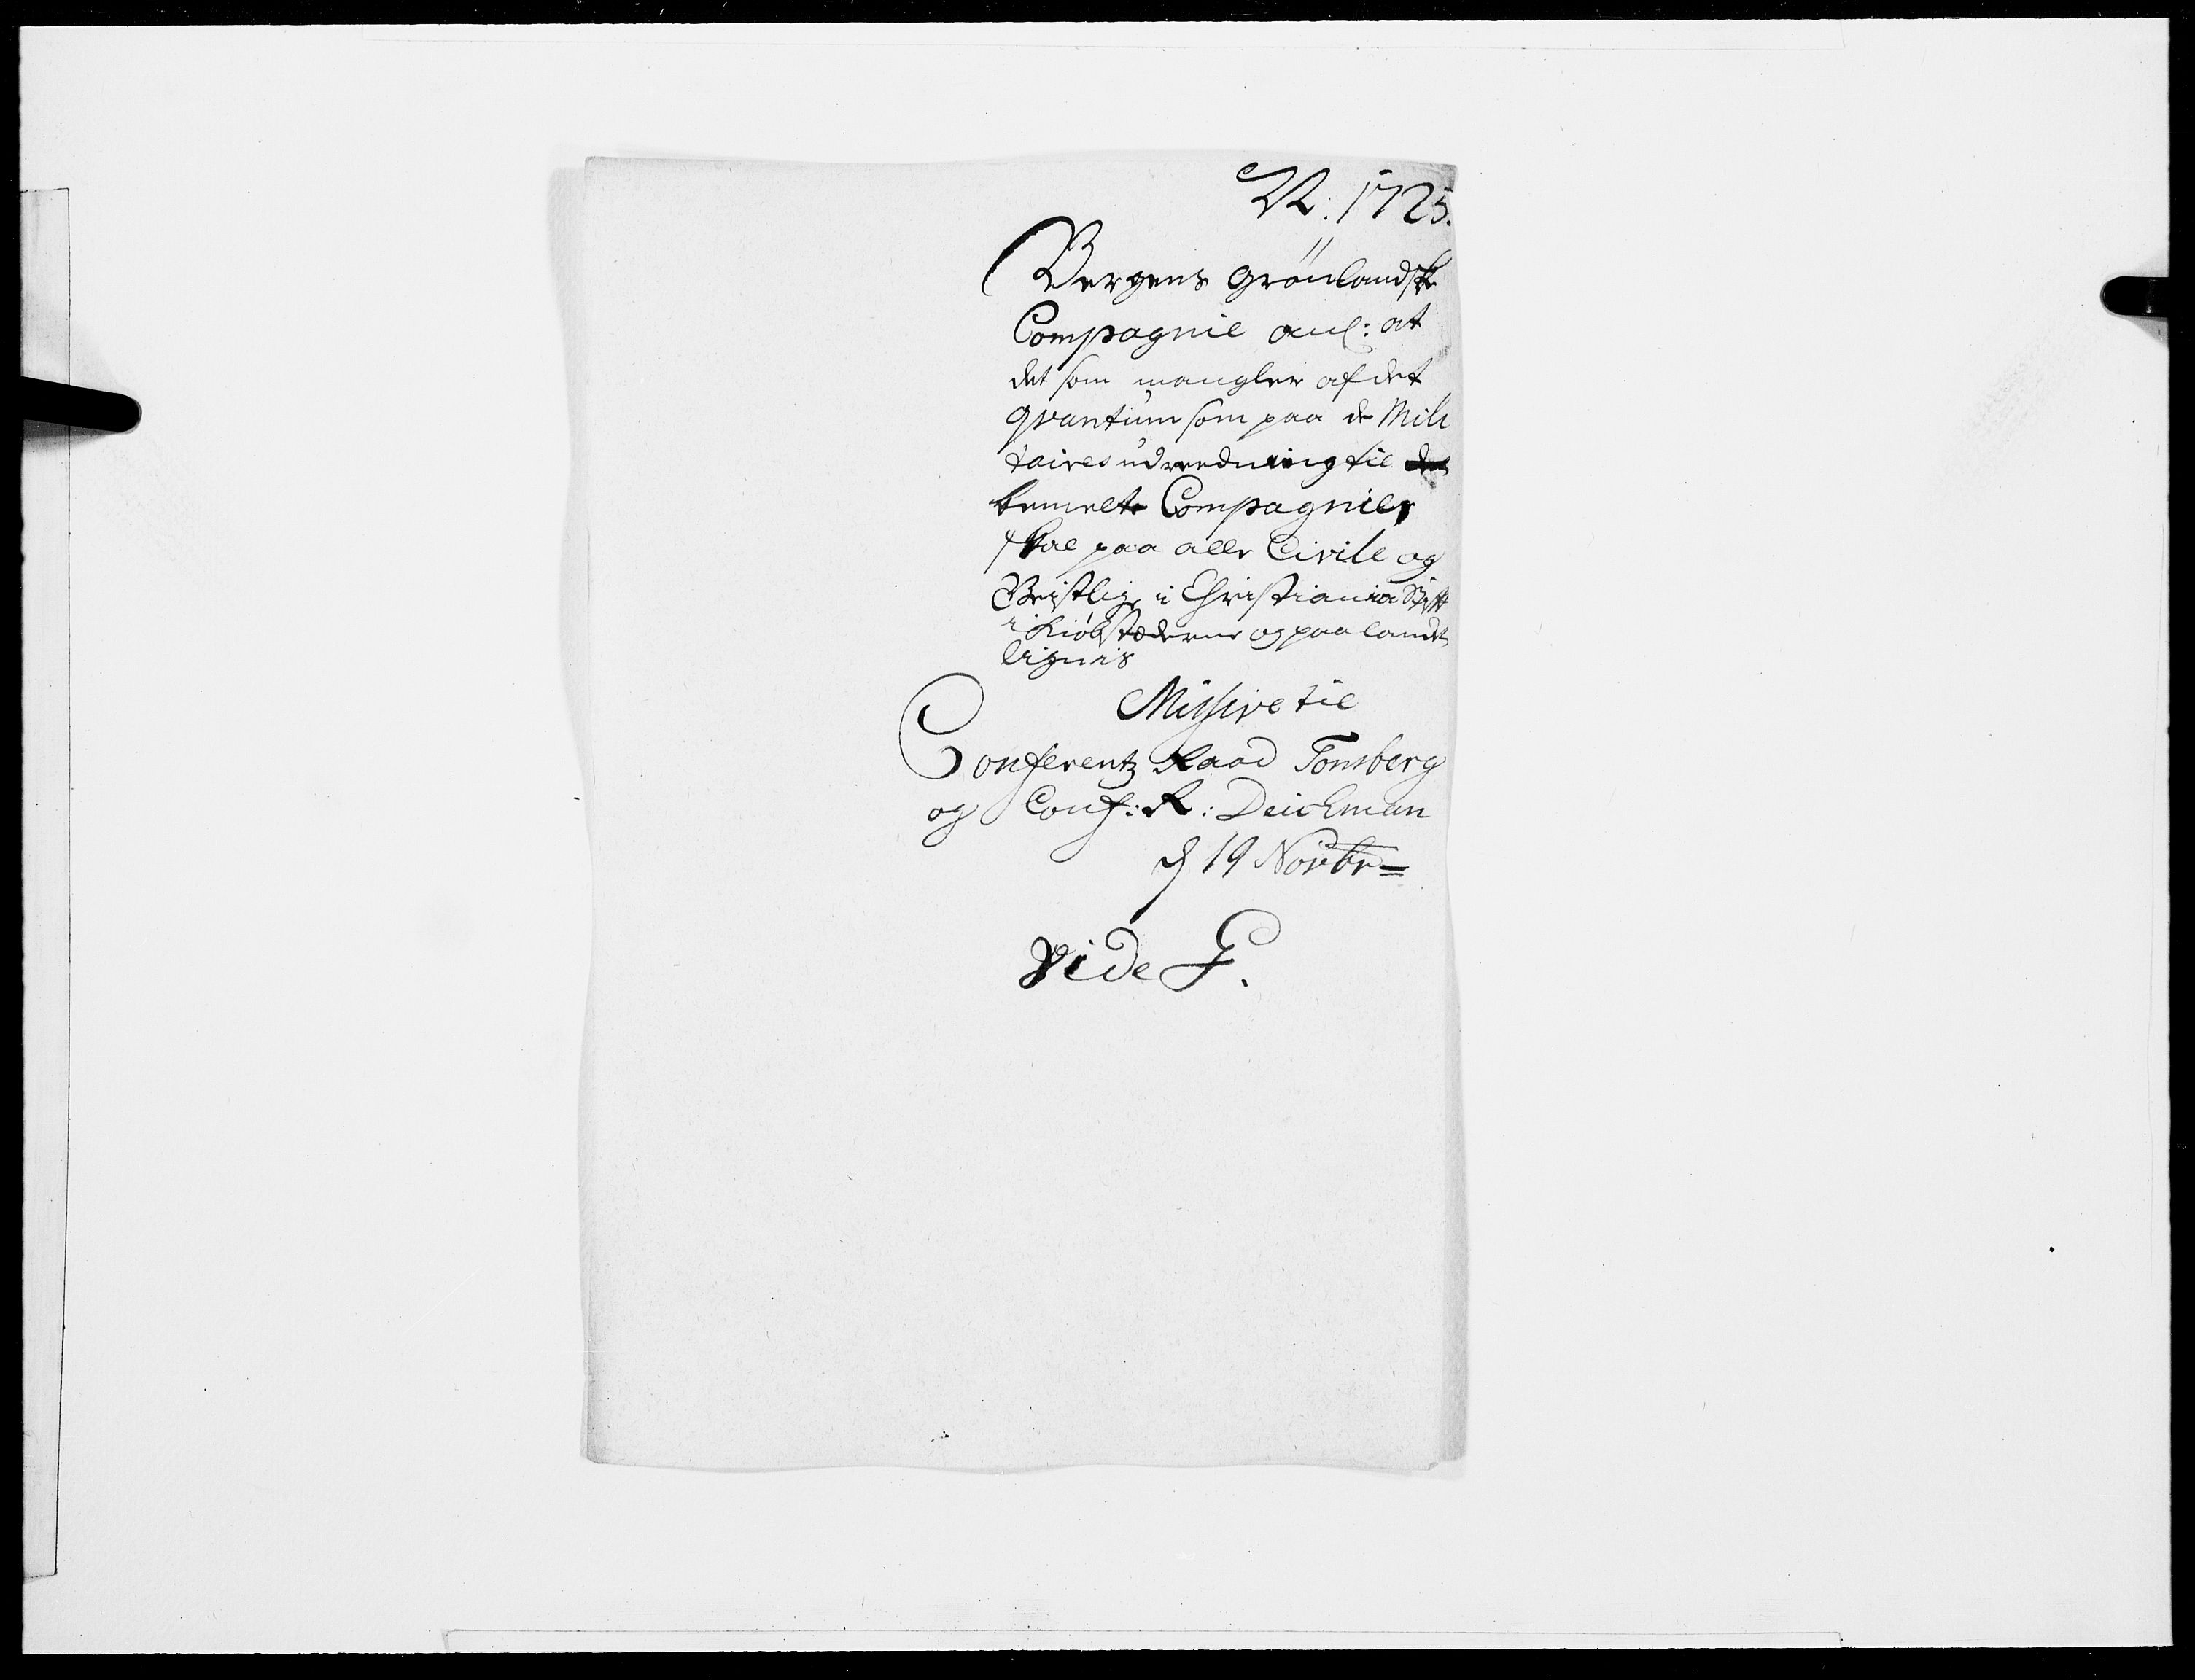 N. 1725.
Bergens Grönlandske
Compagnie anl: at
det som mangler af det
qvantum som paa de Mili
taires udreedning til det
bemelte Compagnie,
skal paa alle Civile og
Geistlige i Christiania Stift
i Kiöbstæderne og paa landet
lignis
Missive til
Conferentz Raad Tonsberg
og Conf: R: Deichman
d 19 Novbr=
vide F.